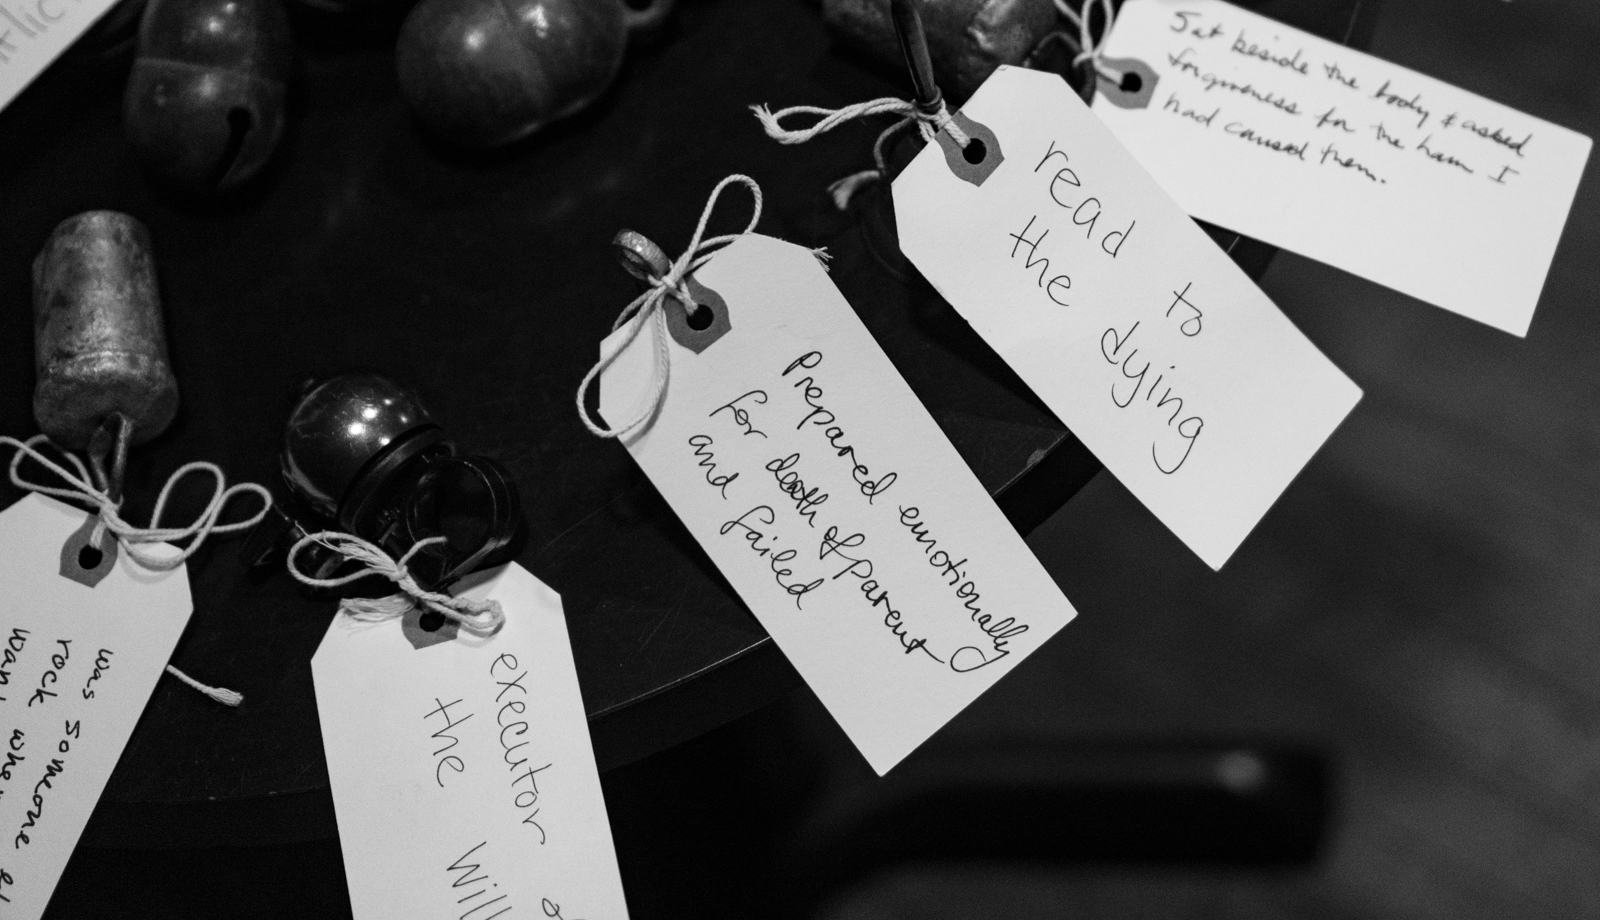 Sat beside the body & asked
forgiveness for the harm I
had caused them.
read to
the dying
Prepared emotionally
for death of parent
and failed
executor
the will
was someone
rock when